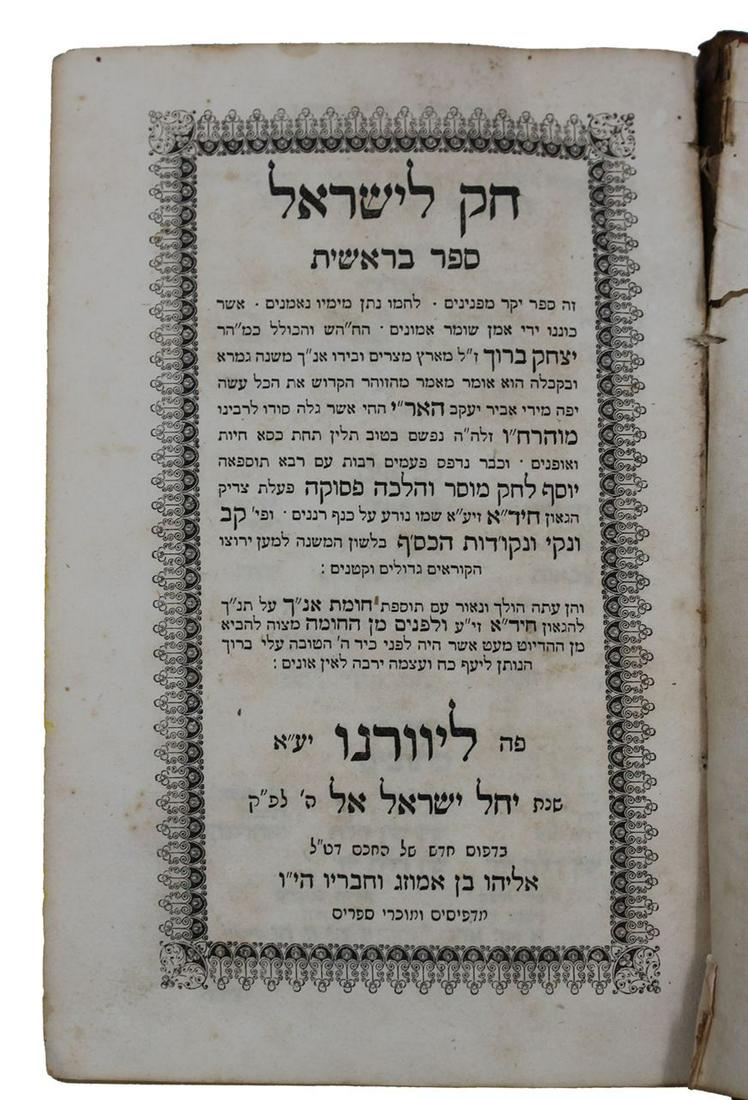 חק לישראל
ספר בראשית
זה ספר יקר מפנינים · לחמו נתן מימיו נאמנים · אשר
כוננו ידי אמן שומר אמונים · הח״הש והכולל כמ״הר
יצחק ברוך ז״ל מארץ מצרים ובידו אנ״ך משנה גמרא
ובקבלה הוא אומר מאמר מהזוהר הקדוש את הכל עשה
יפה מידי אביר יעקב האר״י החי אשר גלה סודו לרבינו
מוהרח״ו זלה״ה נפשם בטוב תלין תחת כסא חיות
ואופנים · וכבר נדפס פעמים רבות עם רבא תוספאה
יוסף לחק מוסר והלכה פסוקה פעלת צדיק
הגאון חיד״א זיע״א שמו נודע על כנף רננים · ופי׳ קב
ונקי ונקו׳דות הכס׳ף בלשון המשנה למען ירוצו
הקוראים גדולים וקטנים :
והן עתה הולך ונאור עם תוספת חומת אנ״ך על תנ״ך
להגאון חיד״א זי״ע ולפנים מן החומה מצוה להביא
מן ההדיוט מעט אשר היה לפני כיד ה׳ הטובה עלי ברוך
הנותן ליעף כח ועצמה ירבה לאין אונים :
פה ליוורנו יע״א
שנת יחל ישראל אל ה׳ לפ״ק
בדפוס חדש של החכם דט״ל
אליהו בן אמוזג וחבריו הי״ו
מדפיסים ומוכרי ספרים